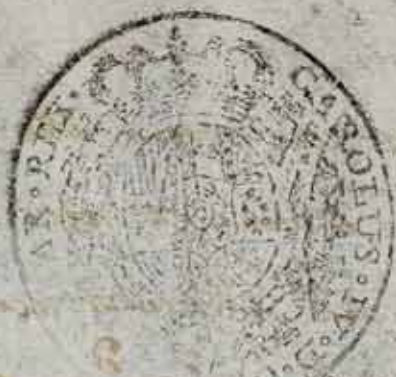 CAROLUS · IV · D
AR · REX ·